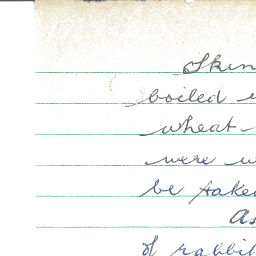 Skin
boiled
wheat
were
be taken
As
of rabbit